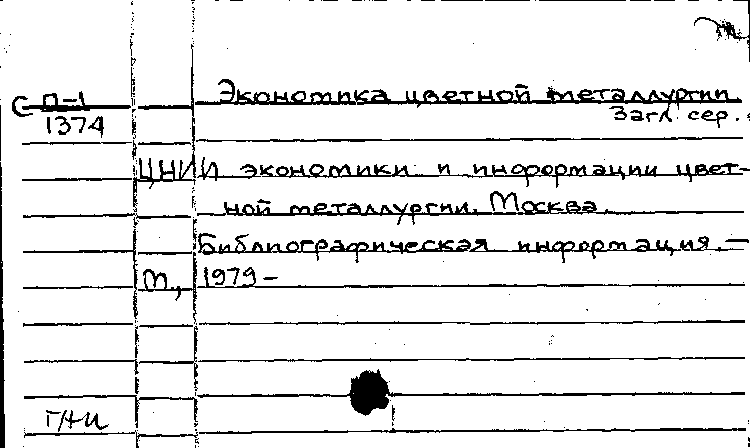 Экономика цветной металлургии.
С П-1
1374
Загл. сер.
ЦНИИ экономики и информации цвет-
ной металлургии. Москва.
Библиографическая информация. —
М., 1979 –